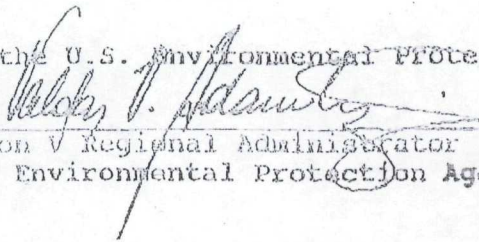 the U.S. Environmental Prote
Valdas V. Adamkus
on V Regional Administrator
Environmental Protection Age